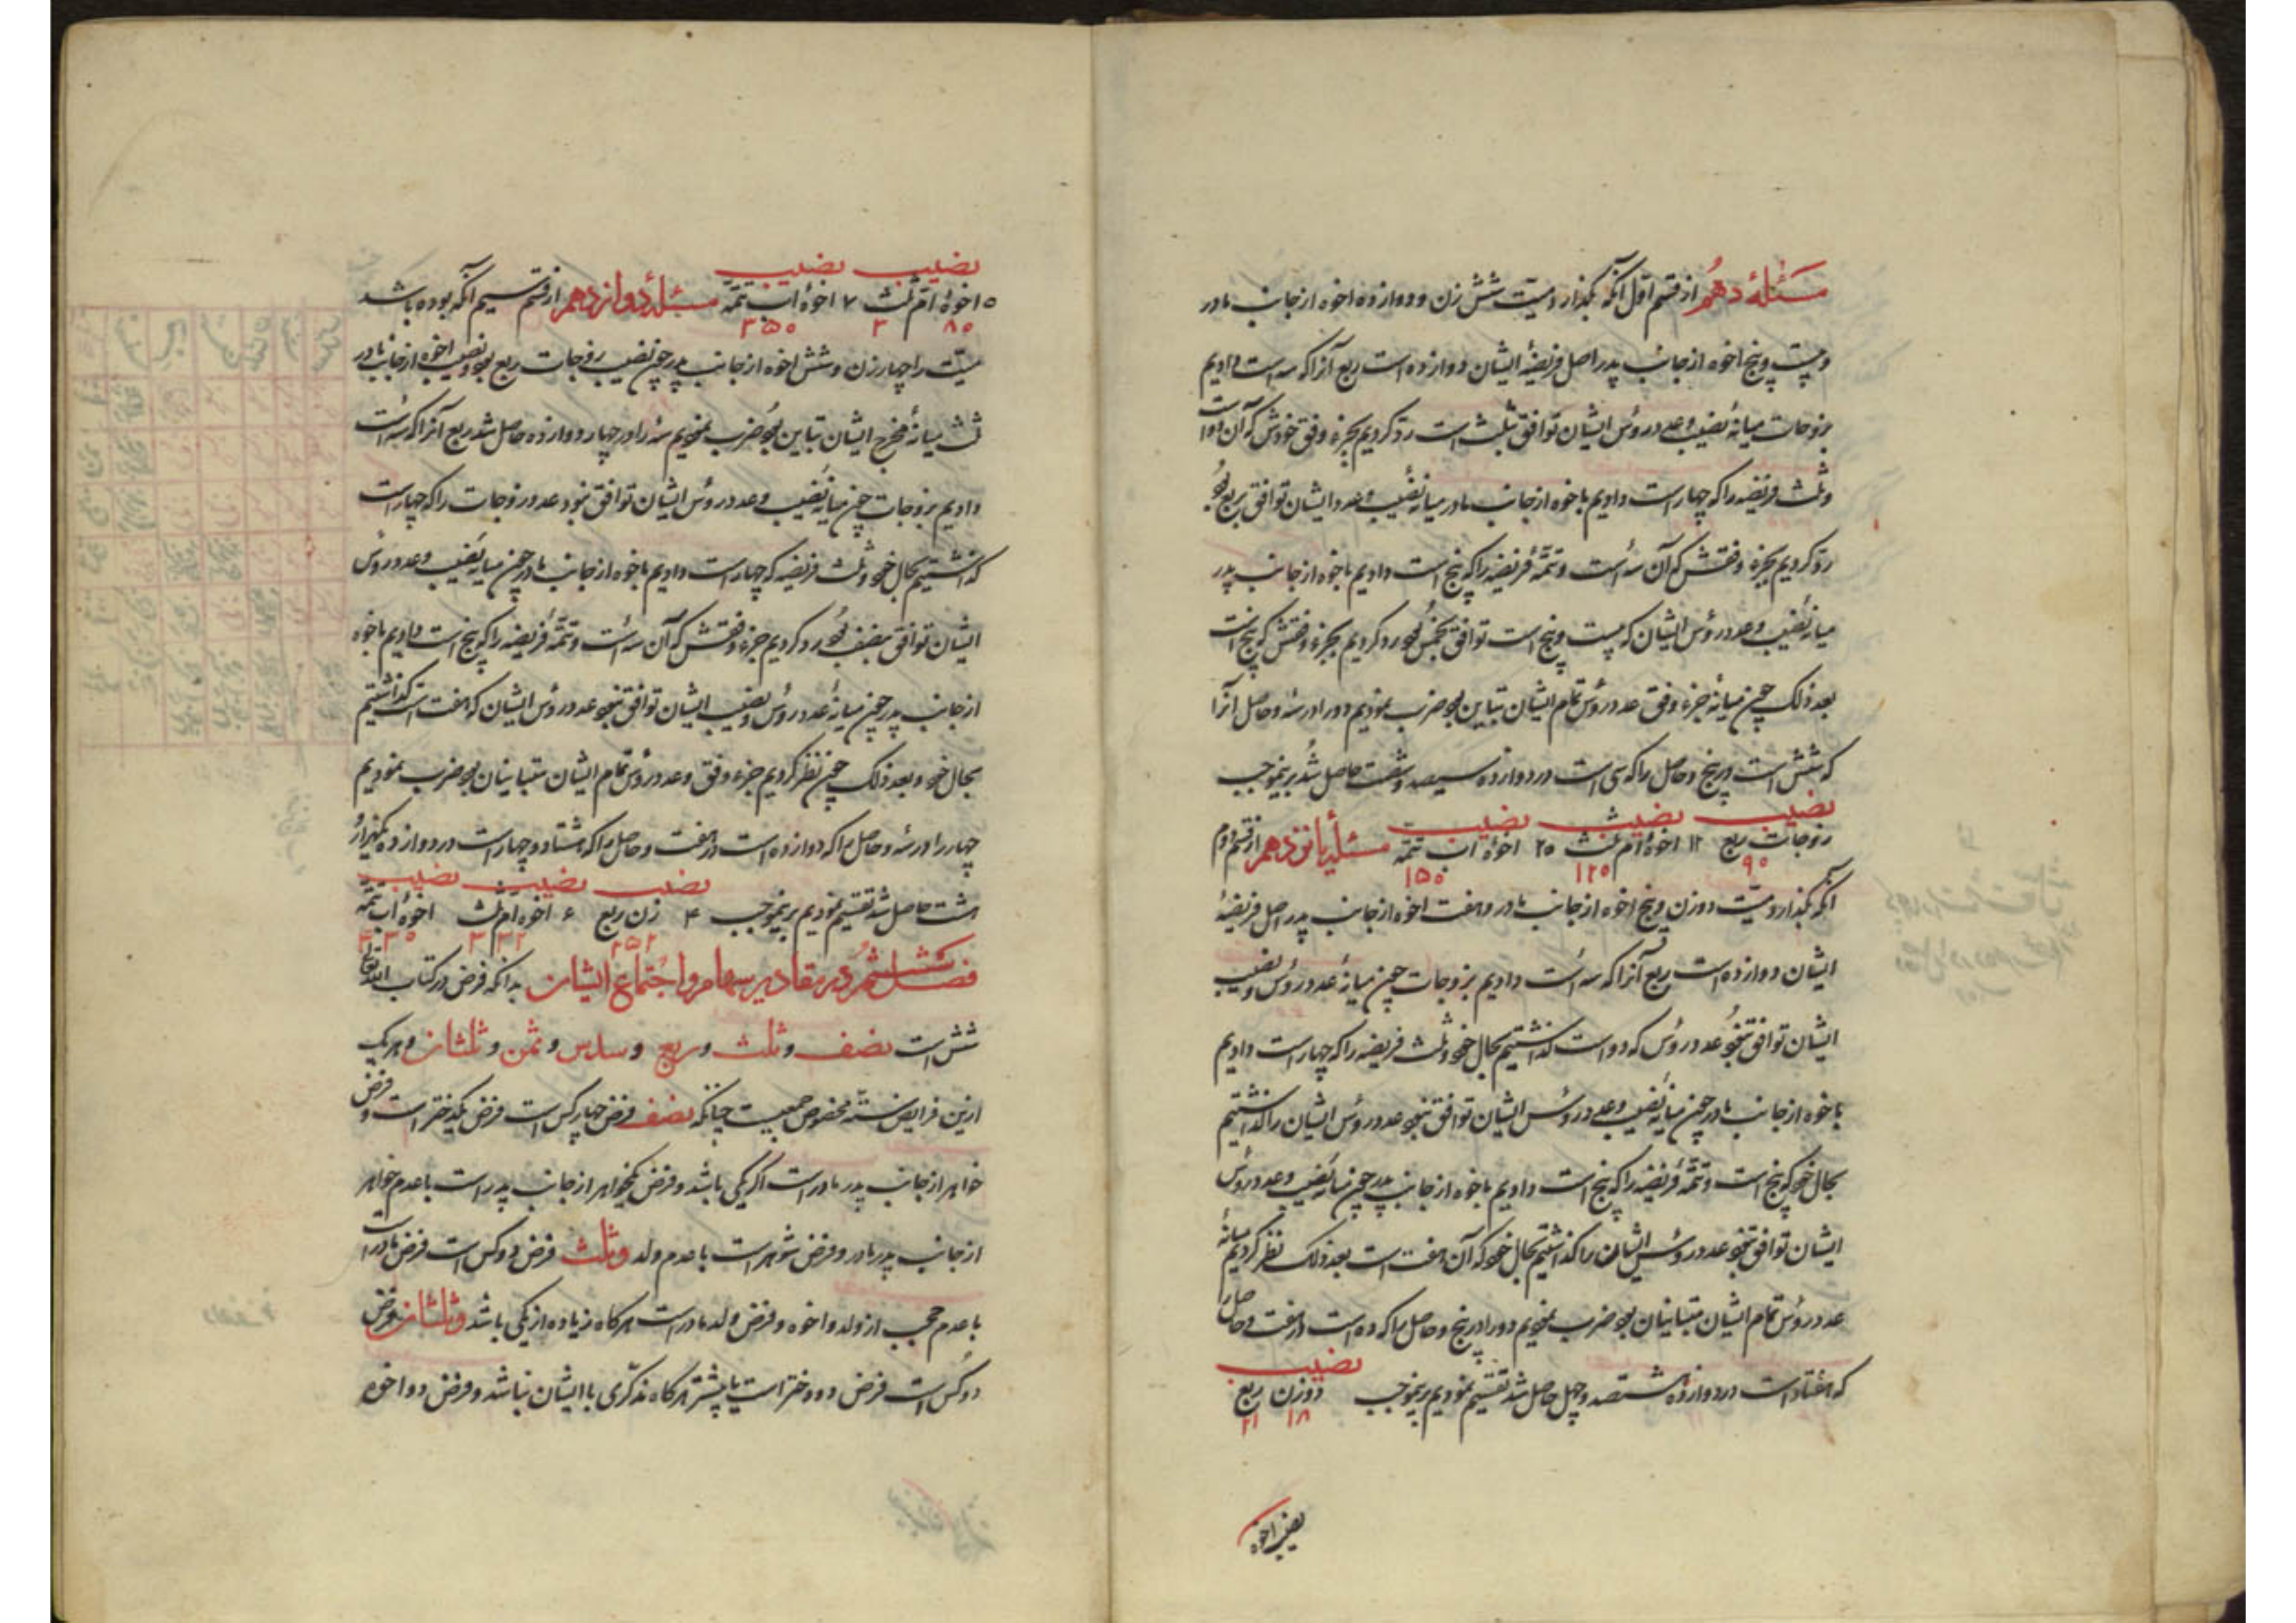 مسئلهٔ دهم از قسم اول آنکه بگذارد میت شش زن و دوازده اخوه از جانب مادر
و بیست و پنج اخوه از جانب پدر اصل فریضهٔ ایشان دوازده است ربع آنرا که سه است دادیم
بزوجات میانهٔ نصیب و عدد رؤس ایشان توافق بثلث است رد کردیم بجزء وفق خودش که آن دو است
و ثلث فریضه را که چهار است دادیم باخوه از جانب مادر میانه نصیب و عدد ایشان توافق بربع بود
رد کردیم بجزء وفقش که آن سه است و تتمهٔ فریضه را که پنج است دادیم باخوه از جانب پدر
میانه نصیب و عدد رؤس ایشان که بیست و پنج است توافق بخمس بود رد کردیم بجزء وفقش که پنج است
بعد ذلک چون میانه جزء وفق عدد رؤس تمام ایشان تباین بود ضرب نمودیم دو را در سه و حاصل آنرا
که شش است در پنج و حاصل را که سی است در دوازده سیصد و شصت حاصل شد برینموجب
نصیب نصیب نصیب
زوجات ربع ۱۲ اخوهٔ ام ثلث ۲۵ اخوهٔ اب تتمه مسئلهٔ یانزدهم از قسم دوم
۹۰ ۱۲۰ ۱۵۰
آنکه بگذارد میت دو زن و پنج اخوه از جانب مادر و هفت اخوه از جانب پدر اصل فریضهٔ
ایشان دوازده است ربع آنرا که سه است دادیم بزوجات چون میانهٔ عدد رؤس و نصیب
ایشان توافق نبود عدد رؤس که دو است گذاشتیم بحال خود و ثلث فریضه را که چهار است دادیم
باخوه از جانب مادر چون میانه نصیب و عدد رؤس ایشان توافق نبود عدد رؤس ایشان را گذاشتیم
بحال خود که پنج است و تتمهٔ فریضه را که پنج است دادیم باخوه از جانب پدر چون میانه نصیب و عدد رؤس
ایشان توافق نبود عدد رؤس ایشان را گذاشتیم بحال خود که آن هفت است بعد ذلک نظر کردیم میانهٔ
عدد رؤس تمام ایشان متباینان بود ضرب نمودیم دو را در پنج و حاصل را که ده است در هفت و حاصل را
نصیب
که هفتاد است در دوازده هشتصد و چهل حاصل شد تقسیم نمودیم برینموجب دو زن ربع
نصیب اخوه
نصیب نصیب
۵ اخوهٔ ام ثلث ۷ اخوهٔ اب تتمه مسئلهٔ دوانزدهم از قسم سیم آنکه بوده باشد
۳۵۰
میت را چهار زن و شش اخوه از جانب پدر چون نصیب زوجات ربع بود و نصیب اخوه از جانب مادر
ثلث میانهٔ مخرج ایشان تباین بود ضرب نمودیم سه را در چهار دوازده حاصل شد ربع آنرا که سه است
دادیم بزوجات چون میانه نصیب و عدد رؤس ایشان توافق نبود عدد زوجات را که چهار است
گذاشتیم بحال خود و ثلث فریضه که چهار است دادیم باخوه از جانب مادر چون میانه نصیب و عدد رؤس
ایشان توافق بنصف بود رد کردیم جزء وفقش که آن سه است و تتمهٔ فریضه را که پنج است دادیم باخوه
از جانب پدر چون میانهٔ عدد رؤس و نصیب ایشان توافق نبود عدد رؤس ایشان که هفت است گذاشتیم
بحال خود و بعد ذلک چون نظر کردیم جزء وفق و عدد رؤس تمام ایشان متباینان بود ضرب نمودیم
چهار را در سه و حاصل را که دوازده است در هفت و حاصل را که هشتاد و چهار است در دوازده یکهزار و
نصیب نصیب نصیب
هشت حاصل شد تقسیم نمودیم برینموجب ۴ زن ربع ۶ اخوه ام ثلث اخوهٔ اب تتمه
۲۵۲
فصل ششم در مقادیر سهام و اجتماع ایشان بدانکه فرض در کتاب الله تعالی
شش است نصف و ثلث و ربع و سدس و ثمن و ثلثان و هر یک
ازین فرایض سته مخصوص جمعیست چنانکه نصف فرض چهار کس است فرض یکدختر است و فرض
خواهر از جانب پدر مادر است اگر یکی باشد و فرض یکخواهر از جانب پدر است با عدم خواهر
از جانب پدر مادر و فرض شوهر است با عدم ولد و ثلث فرض دو کس است فرض مادر است
با عدم حجب از ولد و اخوه و فرض ولد مادر است هرگاه زیاده از یکی باشد و ثلثان فرض
دو کس است فرض دو دختر است یا بیشتر هرگاه مذکری با ایشان نباشد و فرض دو اخوه